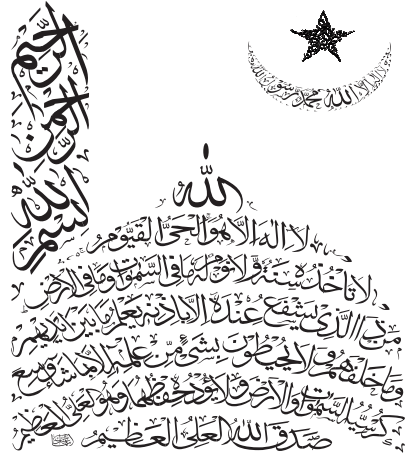 بسم الله الرحمن الرحيم
لا اله الا الله محمد رسول الله
الله
لا اله الا هو الحي القيوم
لا تاخذه سنة ولا نوم له ما في السموات وما في الارض
من ذا الذي يشفع عنده الا باذنه يعلم ما بين ايديهم
وما خلفهم ولا يحيطون بشيء من علمه الا بما شاء وسع
كرسيه السموات والارض ولا يؤده حفظهما وهو العلي العظيم
صدق الله العلي العظيم